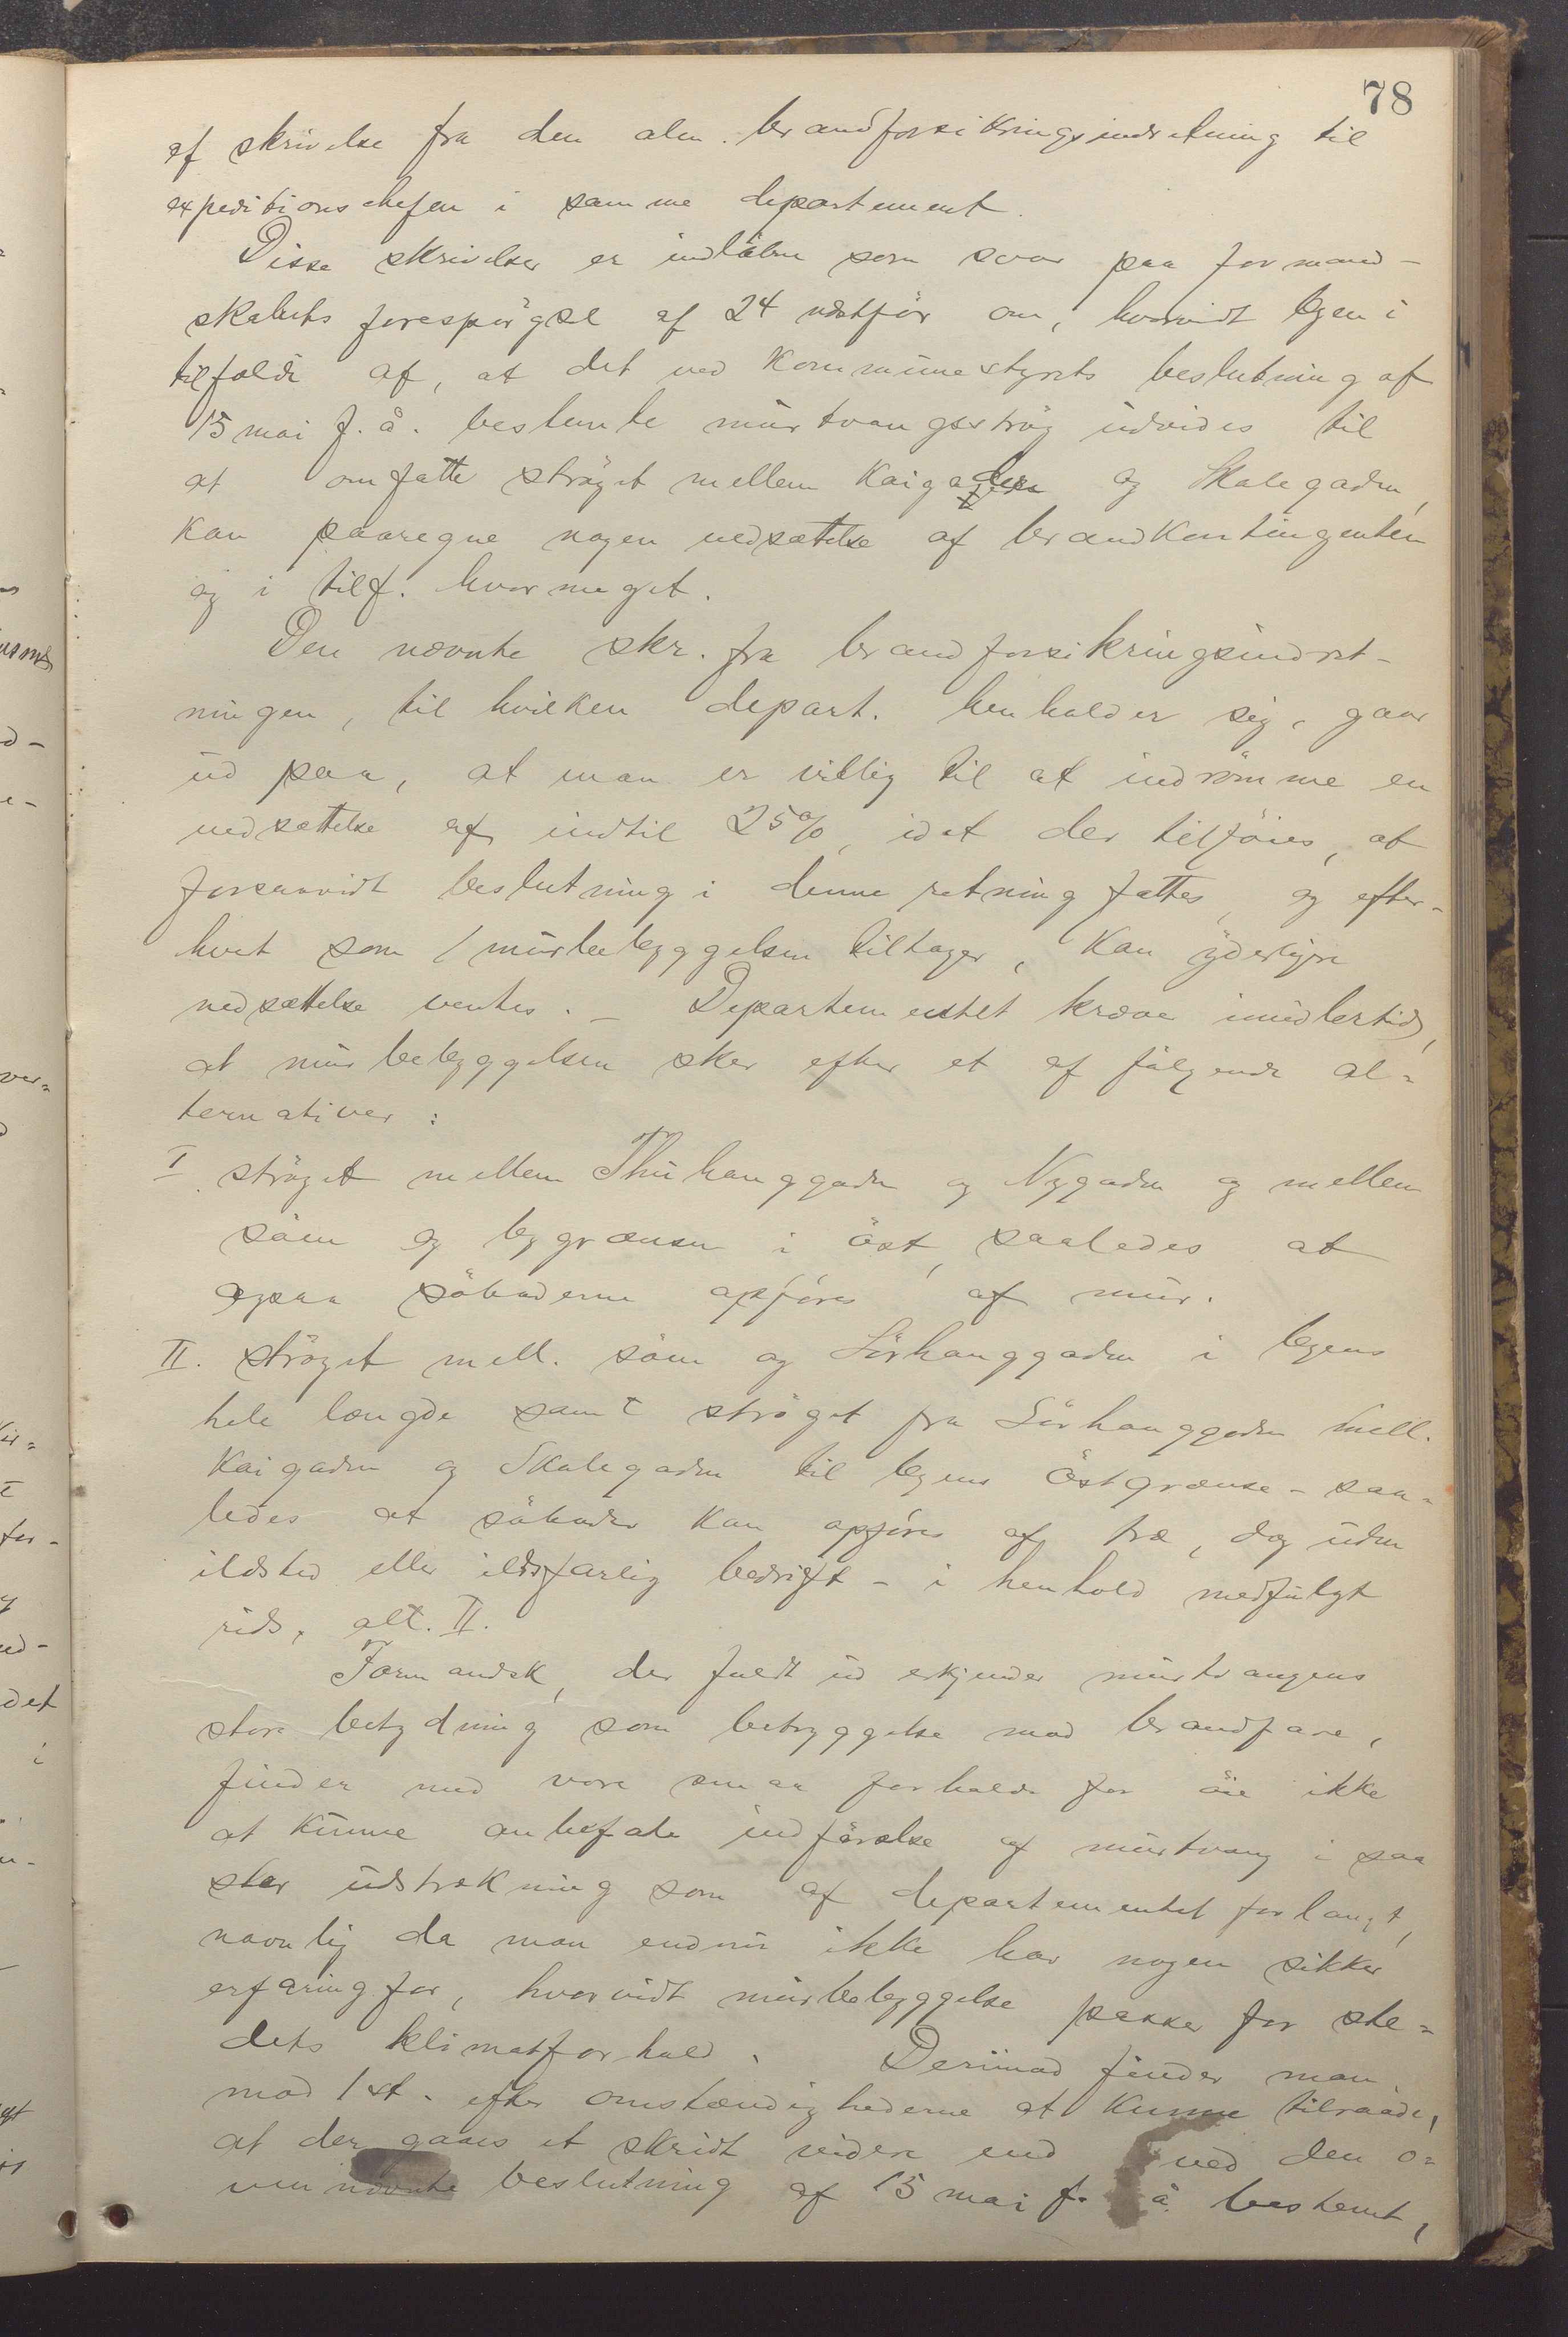 78
af skrivelse fra den alm. brandforsikringsindretning til
expeditionschefen i samme departement.
Disse skrivelser er indløbne som svar paa formand-
skabets forespørgsel af 24 nästfør om, hvorvidt byen i
tilfælde af, at det ved Kommunestyrets beslutning af
15 mai f. å. bestemte murtvangsstrøg udvides til
at omfatte strøget mellem Kaigaden og Skalegaden,
kan paaregne nogen nedsættelse af brandkontingenten
og i tilf. hvormeget.
Den nævnte skr. fra brandforsikringsindret-
ningen, til hvilken depart. henholder sig, gaar
ud paa, at man er villig til at indrømme en
nedsættelse af indtil 25%, idet der tilføies, at
forsaavidt beslutning i denne retning fattes, og efter-
hvert som murbebyggelsen tiltager, kan yderligere
nedsættelse ventes. _ Departementet kræver imidlertid,
at murbebyggelsen sker efter et af følgende al-
ternativer:
I. strøget mellem Thuhauggaden og Nygaden og mellem
søen og bygrænsen i øst, saaledes at
ogsaa søboderne opføres af mur.
II. strøget mell. søen og Sørhauggaden i byens
hele længde samt strøget fra Sørhauggaden mell.
Kaigaden og Skalegaden til byens østgrænse - saa-
ledes at søboder kan opføres af træ, dog uden
ildsted eller ildsfarlig bedrift - i henhold medfulgt
rids, alt. II.
Formandsk, der fuldt ud erkjender murtvangens
store betydning som betryggelse mod brandfare,
finder med vore smaa forholde for øie ikke
at kunne anbefale indførelse af murtvang i saa
stor udstrækning som af departementet forlangt,
navnlig da man endnu ikke har nogen sikker
erfaring for, hvorvidt murbebyggelse passer for ste-
dets klimatforhold. Derimod finder man
mod 1 st. efter omstændighederne at kunne tilraade,
at der gaaes et skridt videre end ved den o-
vennævnte beslutning af 15 mai f. å. bestemt,